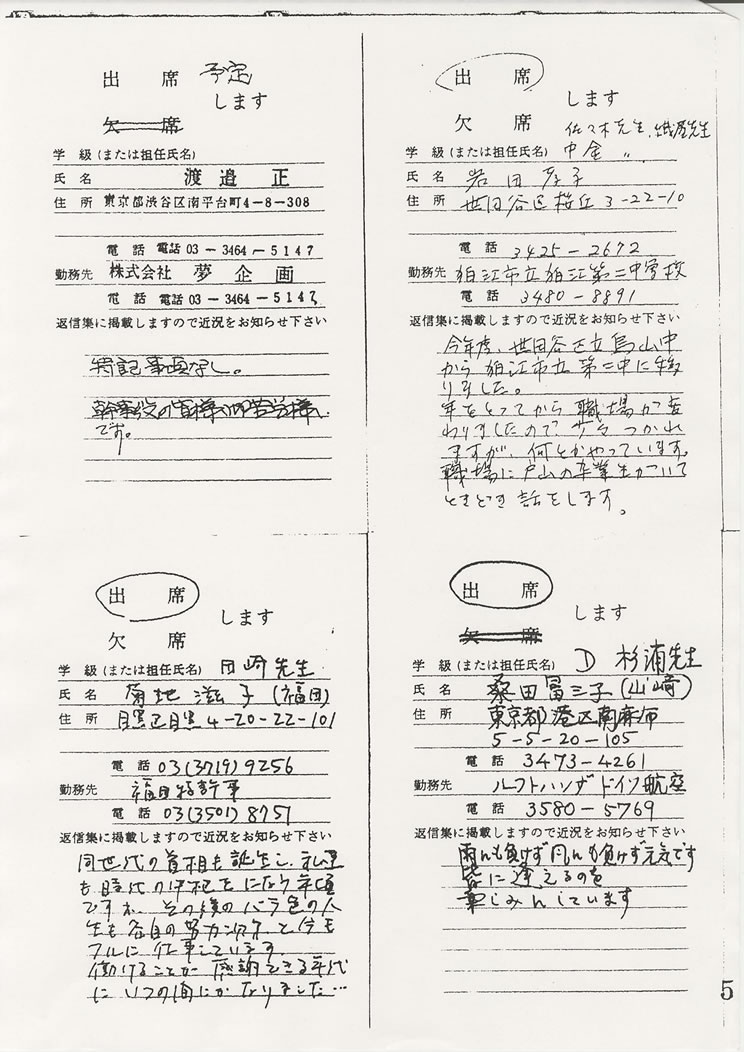 出 席 予定
します
欠 席
学 級 (または担任氏名)
氏 名 渡 邉 正
住 所 東京都渋谷区南平台町4-8-308
電 話 電話 03-3464-5147
勤務先 株式会社 夢 企 画
電 話 電話 03-3464-5147
返信集に掲載しますので近況をお知らせ下さい
特記事項なし。
幹事役の皆様、ご苦労様
です。
出 席
します
欠 席
佐々木先生、
学 級 (または担任氏名) 中金 〃
氏 名 岩田 子
住 所 世田谷区桜丘 3-22-10
電 話 3425-2672
勤務先 狛江市立狛江第二中学校
電 話 3480-8891
返信集に掲載しますので近況をお知らせ下さい
今年度、世田谷区立烏山中
から狛江市立第二中に移
りました。
年をとってから職場が変
わりましたので、少々つかれ
ますが、何とかやっています。
職場に戸山の卒業生がいて
ときどき話をします。
出 席
します
欠 席
学 級 (または担任氏名) 田崎先生
氏 名 菊地 滋子 (福田)
住 所 目黒区目黒 4-20-22-101
電 話 03(3719)9256
勤務先 福田特許事
電 話 03(3501)8751
返信集に掲載しますので近況をお知らせ下さい
同世代の首相も誕生し、私達
も時代の中核をになう年頃
ですが、その後のバラ色の人
生も各自の努力次第、と今も
フルに仕事しています。
働けることが感謝できる年代
にいつの間にかなりました…
出 席
します
欠 席
学 級 (または担任氏名) D 杉浦先生
氏 名 桑田冨三子(山崎)
住 所 東京都港区南麻布
5-5-20-105
電 話 3473-4261
勤務先 ルフトハンザ ドイツ航空
電 話 3580-5769
返信集に掲載しますので近況をお知らせ下さい
雨にも負けず風にも負けず元気です
皆に逢えるのを
楽しみにしています
5